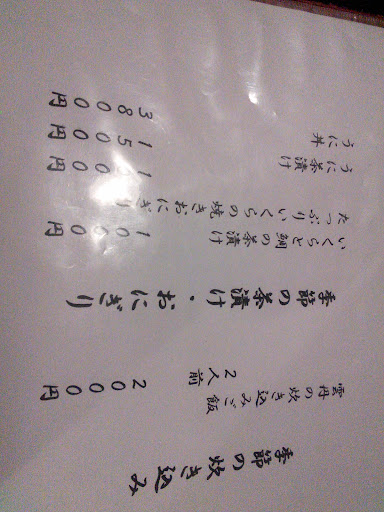 季節の炊き込み
雲丹の炊き込みご飯 2人前 2000円
季節の茶漬け・おにぎり
いくらと鯛の茶漬け 1000円
たっぷりいくらの焼きおにぎり
うに茶漬け 1500円
うに丼 3800円